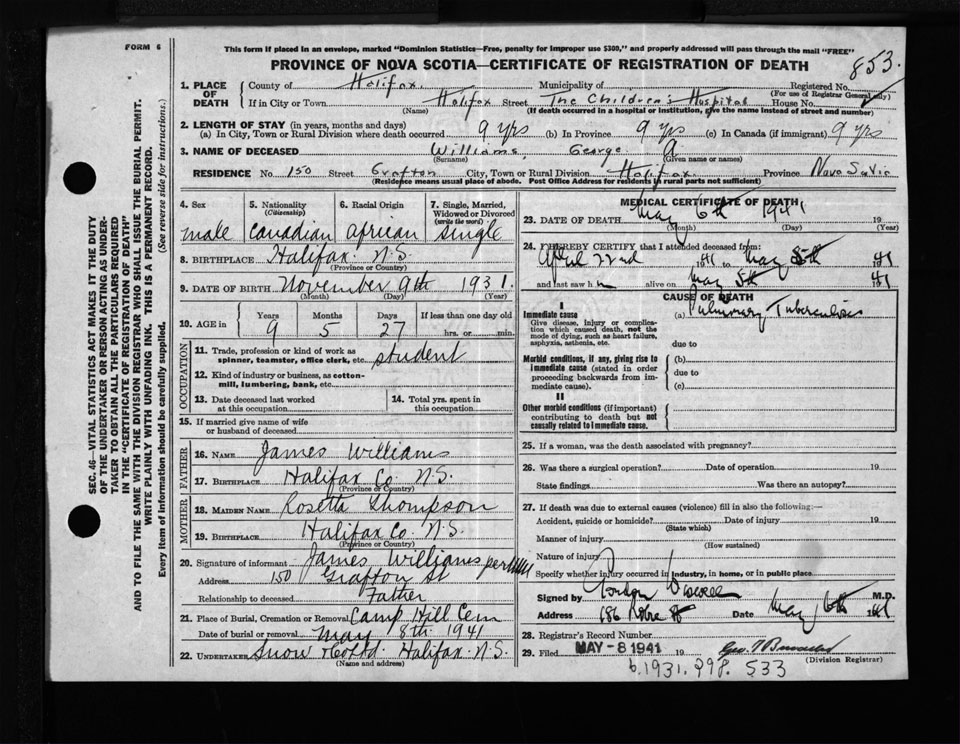 FORM 6
This form if placed in an envelope, marked "Dominion Statistics—Free, penalty for improper use $300," and properly addressed will pass through the mail "FREE"
PROVINCE OF NOVA SCOTIA—CERTIFICATE OF REGISTRATION OF DEATH
853.
1. PLACE OF DEATH
County of Halifax. Municipality of Registered No.
(For use of Registrar General only)
If in City or Town Halifax Street The Children's Hospital House No.
(Name) (If death occurred in a hospital or institution, give the name instead of street and number)
2. LENGTH OF STAY (in years, months and days)
(a) In City, Town or Rural Division where death occurred 9 yrs (b) In Province 9 yrs (c) In Canada (if immigrant) 9 yrs
3. NAME OF DECEASED Williams, George A
(Surname) (Given name or names)
RESIDENCE No. 150 Street Grafton City, Town or Rural Division Halifax Province Nova Scotia
(Residence means usual place of abode. Post Office Address for residents in rural parts not sufficient)
4. Sex 5. Nationality (Citizenship) 6. Racial Origin 7. Single, Married, Widowed or Divorced (write the word)
male Canadian african single
8. BIRTHPLACE Halifax N.S.
(Province or Country)
9. DATE OF BIRTH November 9th 1931.
(Month) (Day) (Year)
10. AGE in Years Months Days If less than one day old
9 5 27 hrs. or min.
OCCUPATION
11. Trade, profession or kind of work as spinner, teamster, office clerk, etc. student
12. Kind of industry or business, as cotton-mill, lumbering, bank, etc.
13. Date deceased last worked at this occupation
14. Total yrs. spent in this occupation
15. If married give name of wife or husband of deceased
FATHER
16. NAME James Williams
17. BIRTHPLACE Halifax Co. N.S.
(Province or Country)
MOTHER
18. MAIDEN NAME Rosetta Thompson
19. BIRTHPLACE Halifax Co N.S.
(Province or Country)
20. Signature of informant James Williams
Address 150 Grafton St
Relationship to deceased Father
21. Place of Burial, Cremation or Removal Camp Hill Cem
Date of burial or removal May 8th 1941
22. UNDERTAKER Snow & Co Ltd. Halifax N.S.
(Name and address)
MEDICAL CERTIFICATE OF DEATH
23. DATE OF DEATH May 6th 1941 19
(Month) (Day) (Year)
24. I HEREBY CERTIFY that I attended deceased from:
April 22nd 1941 to May 5th 1941
and last saw him alive on May 5th 1941
CAUSE OF DEATH
I
Immediate cause (a) Pulmonary Tuberculosis
Give disease, injury or complication which caused death, not the mode of dying, such as heart failure, asphyxia, asthenia, etc.
due to
Morbid conditions, if any, giving rise to immediate cause (stated in order proceeding backwards from immediate cause).
(b)
due to
(c)
II
Other morbid conditions (if important) contributing to death but not causally related to immediate cause.
25. If a woman, was the death associated with pregnancy?
26. Was there a surgical operation? Date of operation 19
State findings Was there an autopsy?
27. If death was due to external causes (violence) fill in also the following:—
Accident, suicide or homicide? Date of injury 19
(State which)
Manner of injury
(How sustained)
Nature of injury
Specify whether injury occurred in industry, in home, or in public place
Signed by Gordon M.D.
Address 186 Date May 6th 1941
28. Registrar's Record Number
29. Filed MAY - 8 1941 19 Geo.
(Division Registrar)
b. 1931. 298. 533
SEC. 46—VITAL STATISTICS ACT MAKES IT THE DUTY
OF THE UNDERTAKER OR PERSON ACTING AS UNDERTAKER
TO OBTAIN ALL THE PARTICULARS REQUIRED
IN THE "CERTIFICATE OF REGISTRATION OF DEATH"
AND TO FILE THE SAME WITH THE DIVISION REGISTRAR WHO SHALL ISSUE THE BURIAL PERMIT.
WRITE PLAINLY WITH UNFADING INK. THIS IS A PERMANENT RECORD.
Every item of information should be carefully supplied. (See reverse side for instructions.)